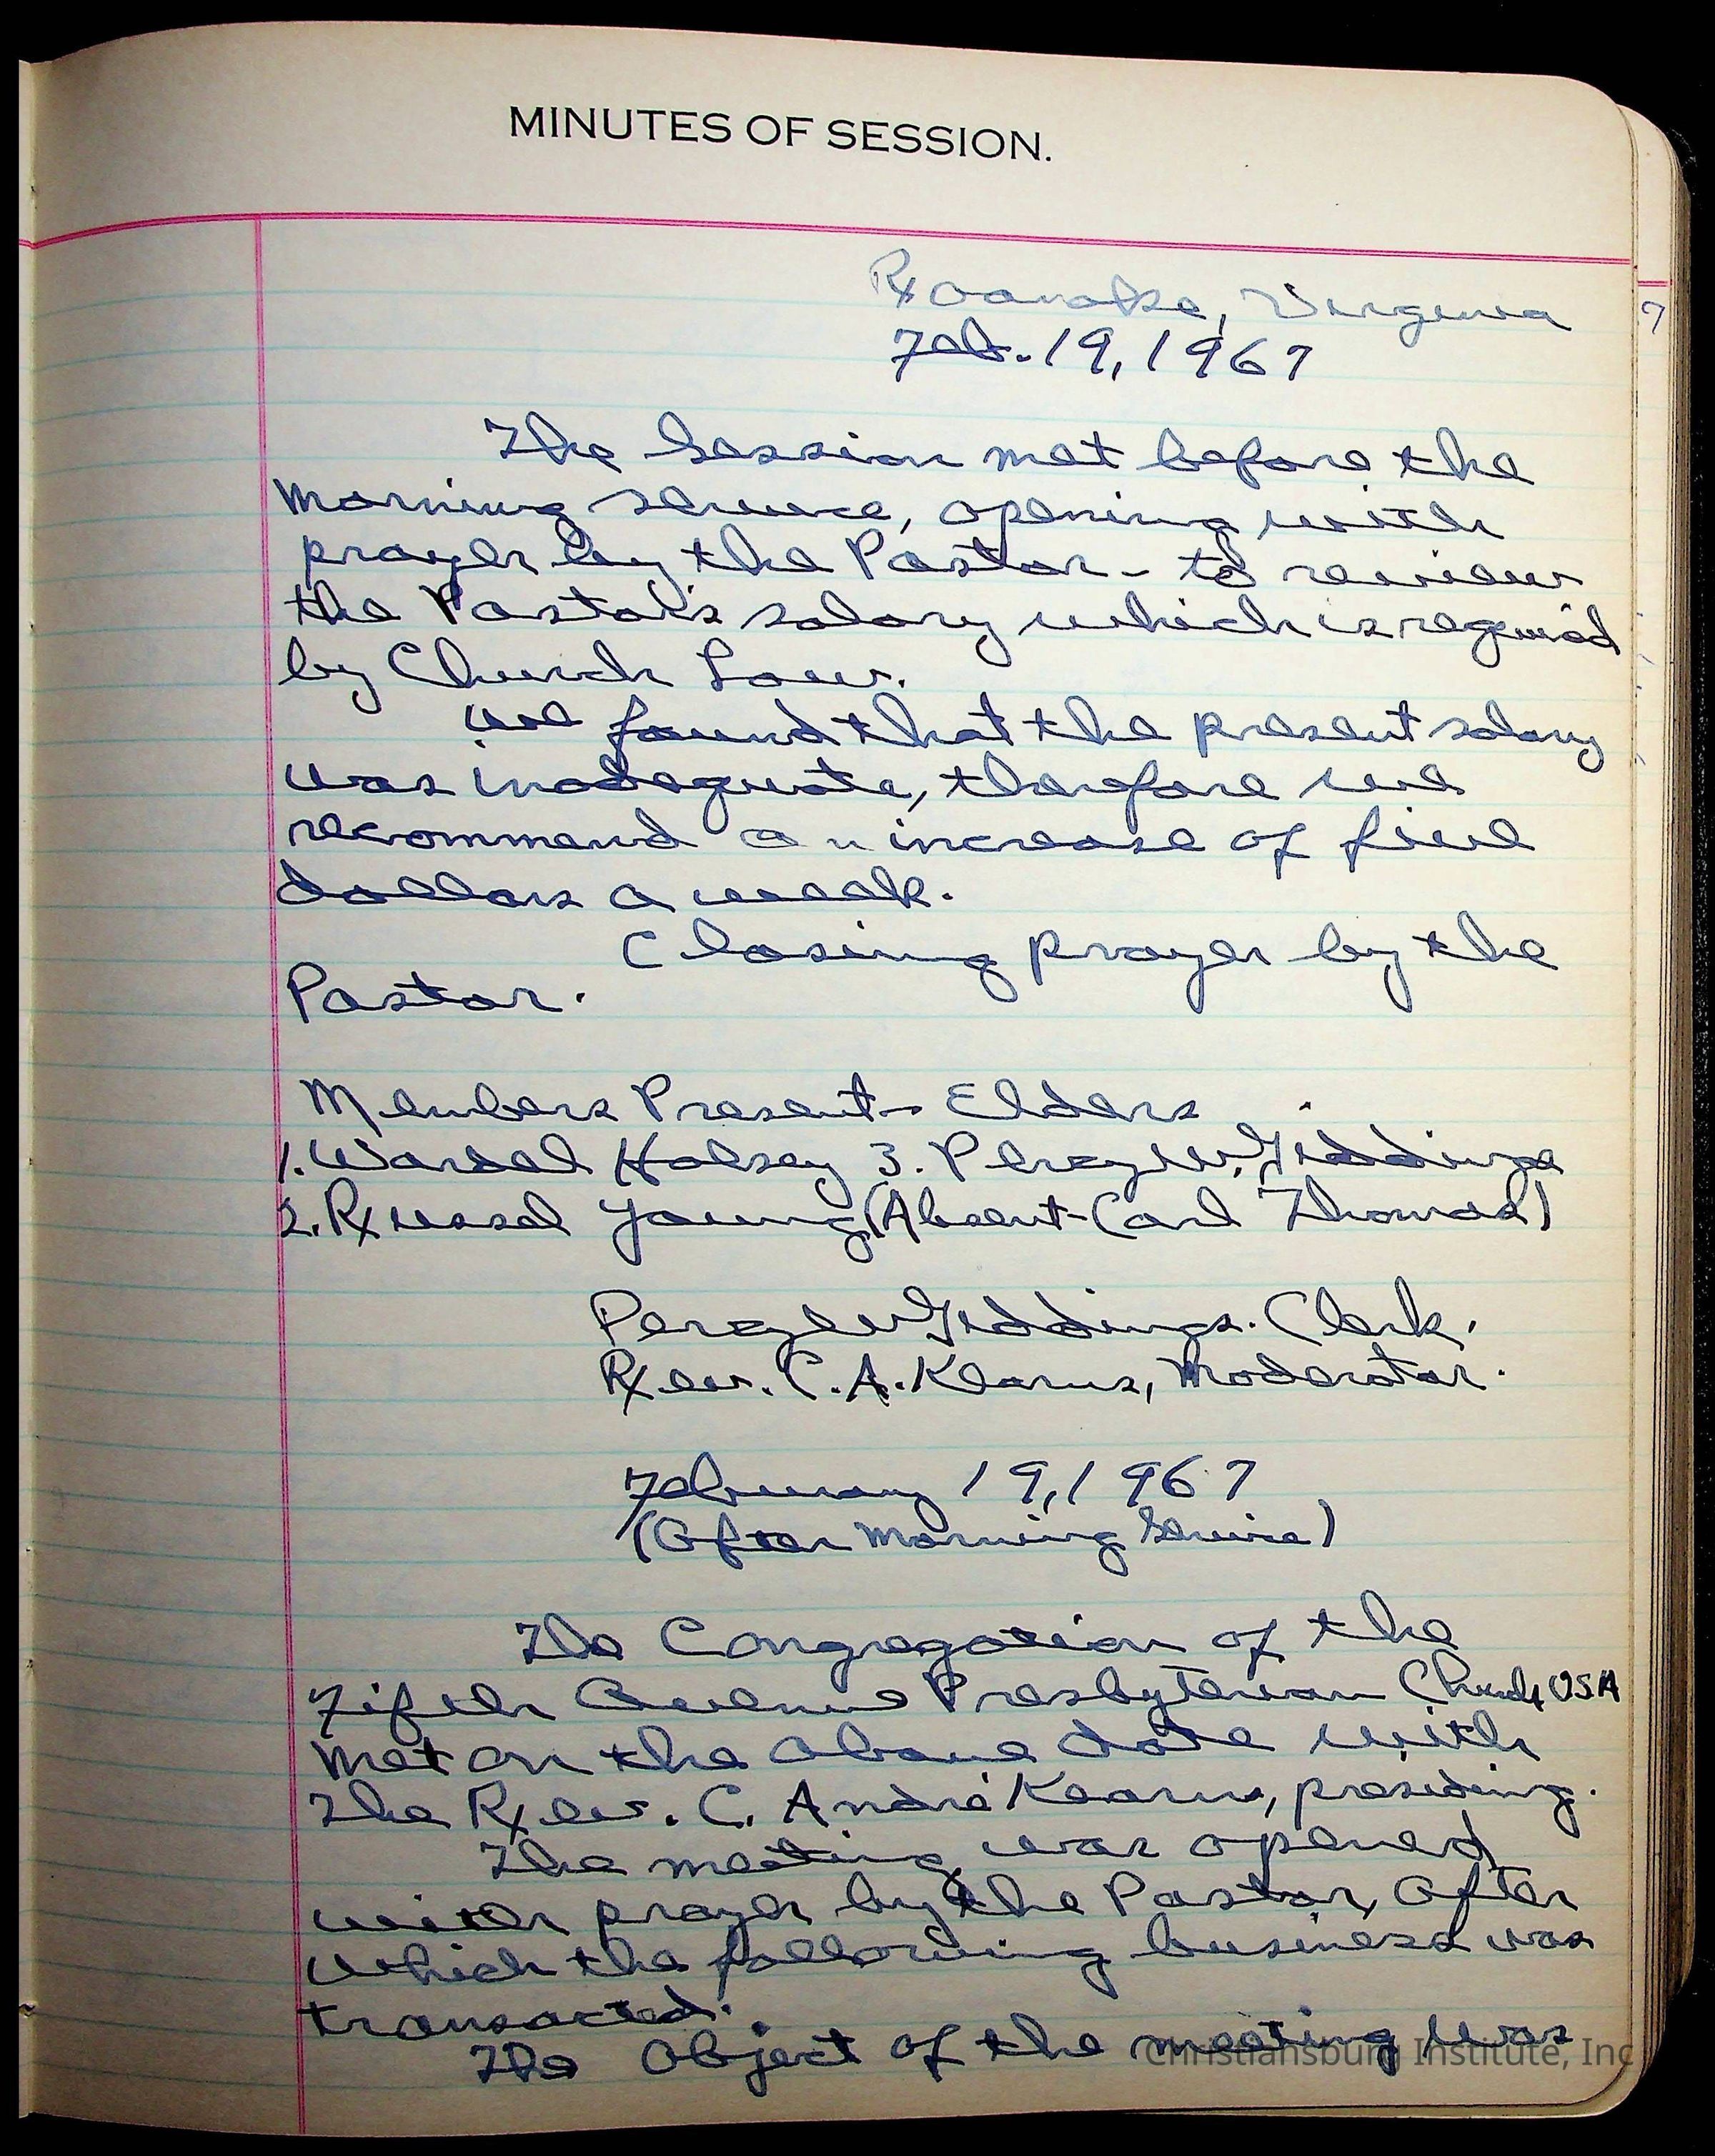 MINUTES OF SESSION.
Roanoke, Virginia
7
Feb. 19, 1967
The Session met before the
morning service, opening with
prayer by the Pastor - to review
the Pastor's salary which is required
by Church Law.
We found that the present salary
was inadequate, therefore we
recommend an increase of five
dollars a week.
Closing prayer by the
Pastor.
Members Present - Elders
1. Wardel Holsey 3. Percy W. Giddings
2. Russel Young (Absent - Carl Thomas)
Percy W Giddings. Clerk.
Rev. C. A. Kearns, Moderator.
February 19, 1967
(After Morning Service)
The Congregation of the
Fifth Avenue Presbyterian Church, USA
met on the above date with
the Rev. C. André Kearns, presiding.
The meeting was opened
with prayer by the Pastor, after
which the following business was
transacted.
The object of the meeting was
Christiansburg Institute, Inc